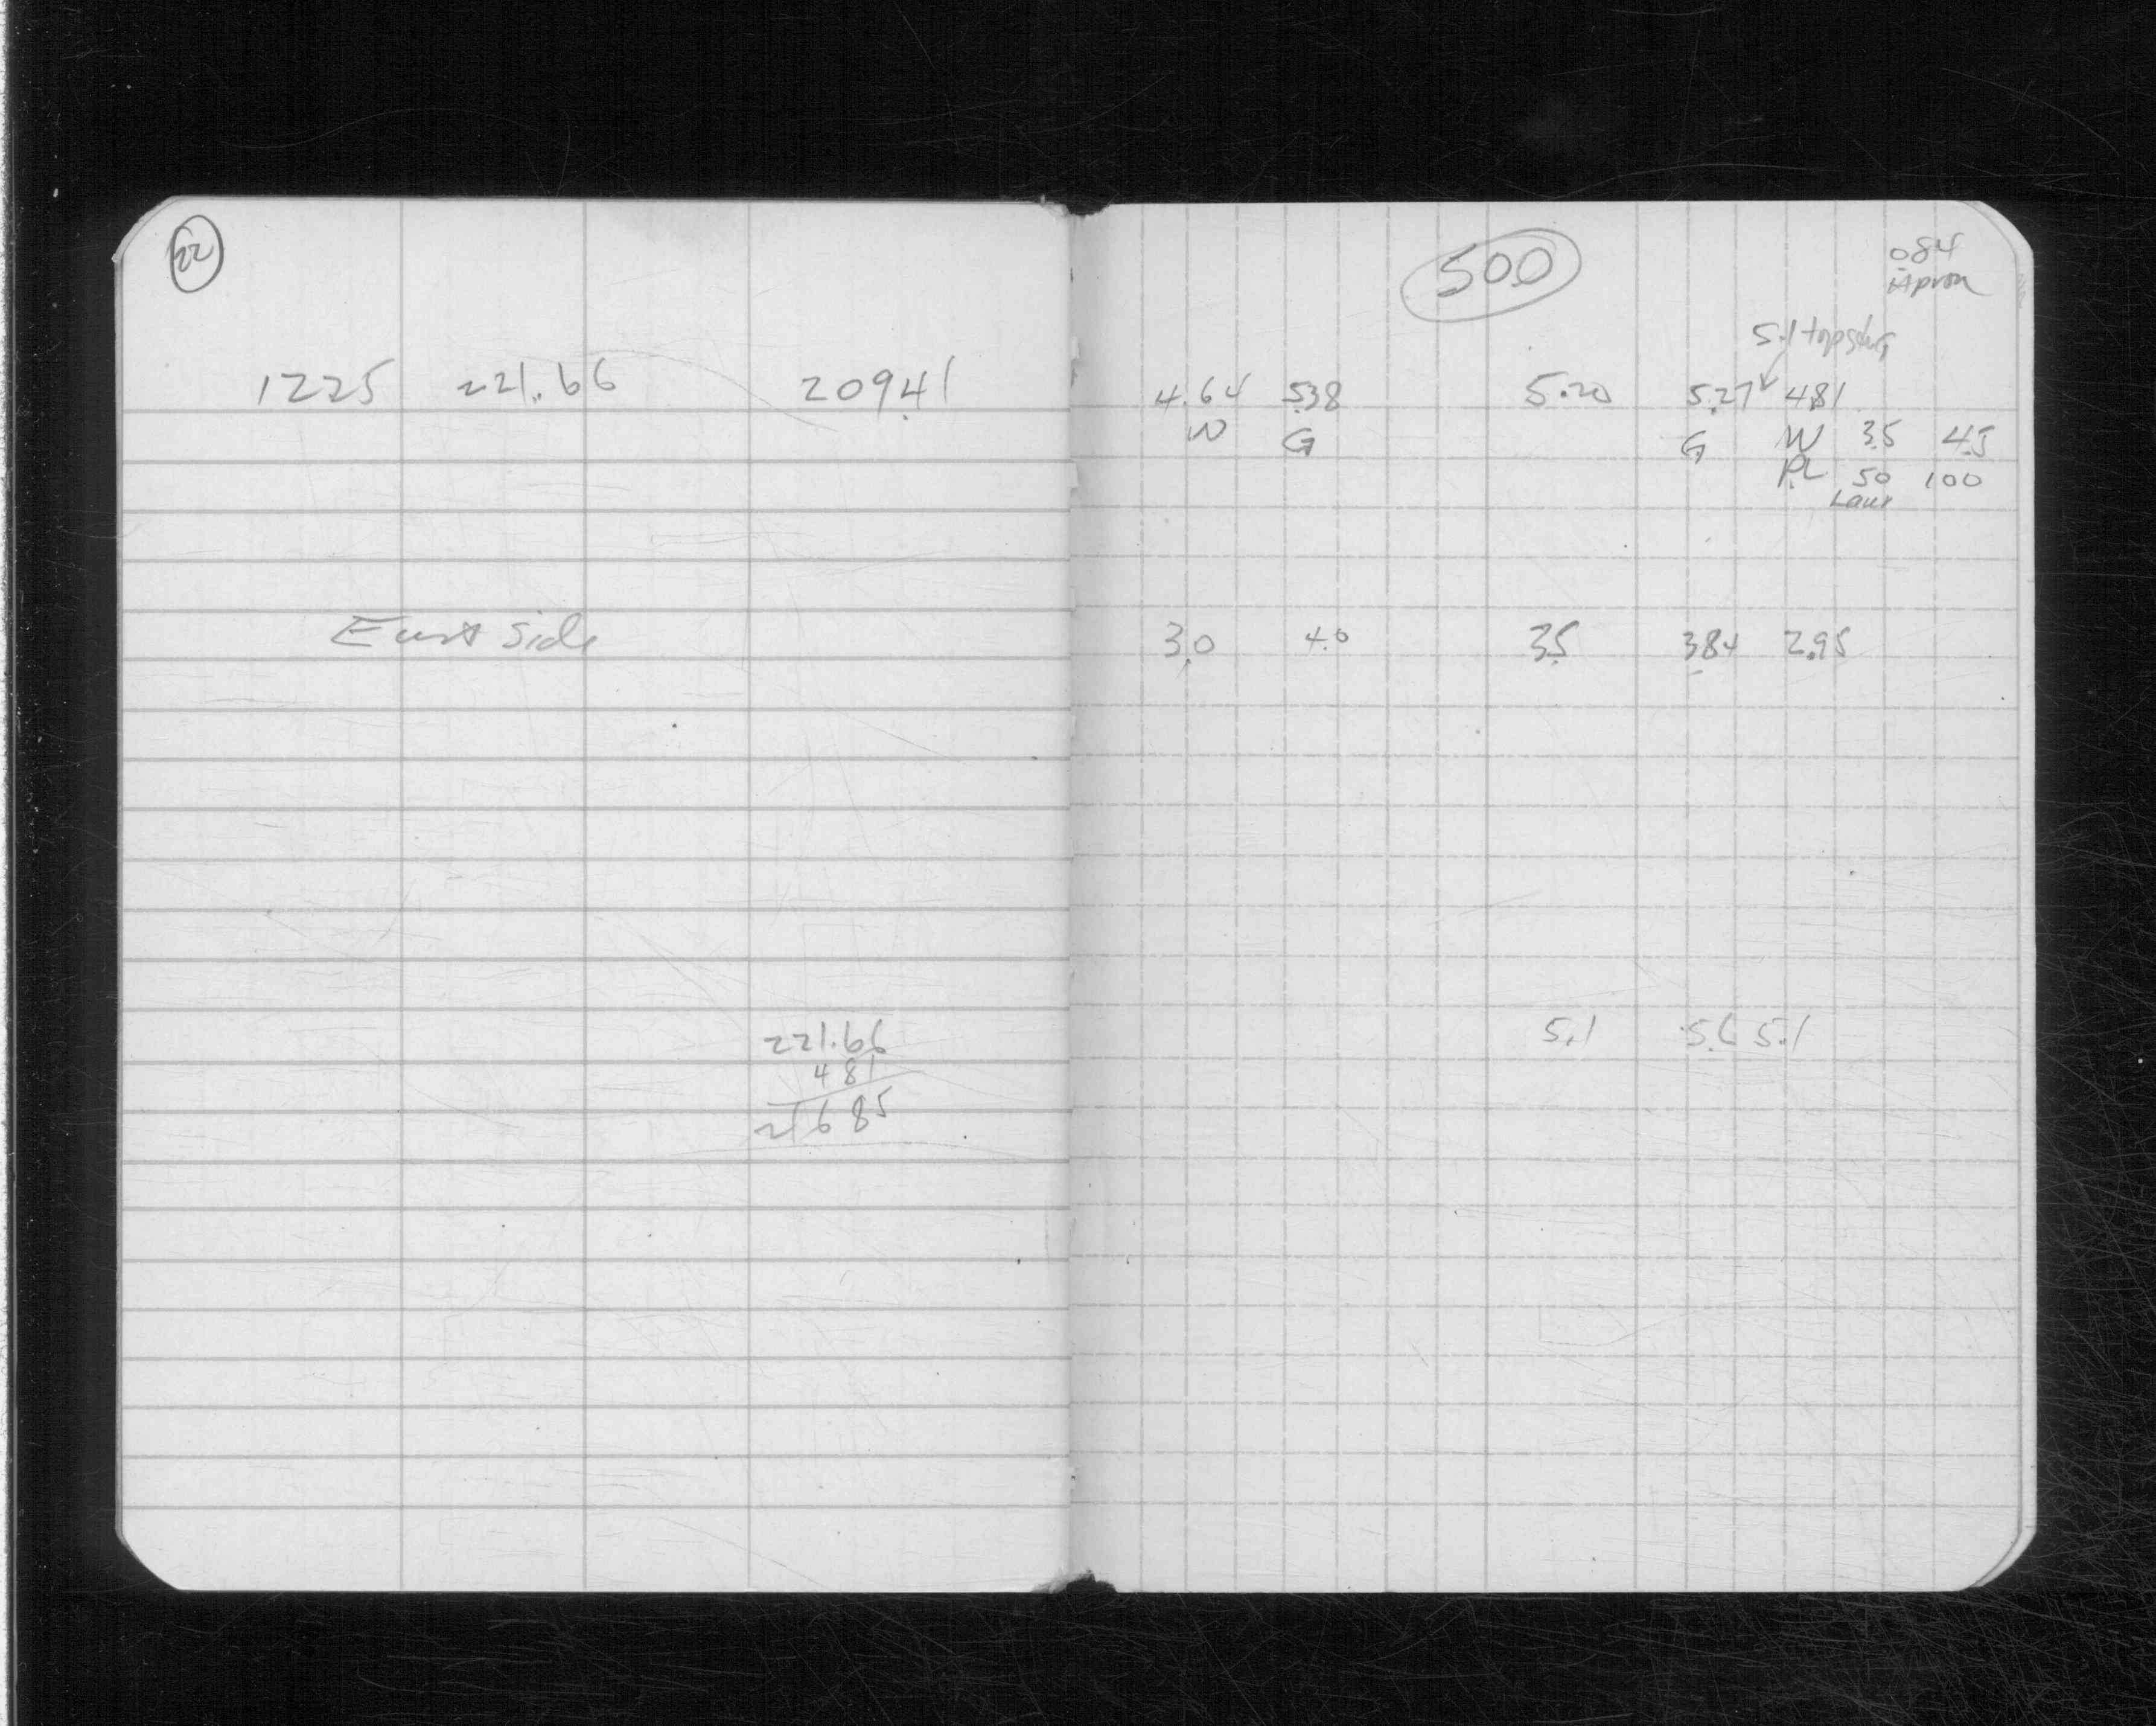 22
1225 221.66 209.41
East Side
221.66
4 81
216 85
500
084
Apron
5.1 top
4.64 5.38 5.20 5.27 4.81
W G G W 3.5 4.5
PL 50 100
Lawn
3.0 4.0 3.5 3.84 2.95
5.1 5.6 5.1